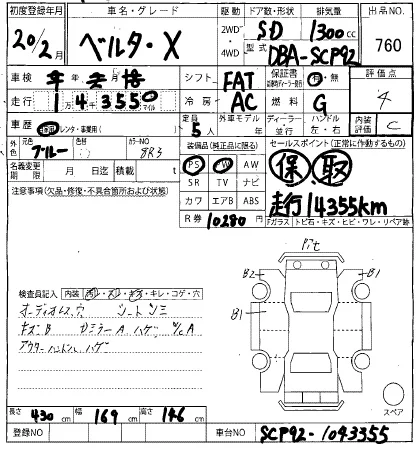 初度登録年月 車名・グレード 駆動 ドア数・形状 排気量 出品NO
20/2月 ベルタ・X 2WD 4WD SD 1300cc 760
型式 DBA-SCP92
車検 年 月 シフト FAT 保証書 有・無 評価点
走行 14355 マイル 冷房 AC 燃料 G 4
車歴 自家用・レンタ・事業用( ) 定員 5人 外車モデル 年 ディーラー・並行 ハンドル 左・右 内装評価 C
外装元色 ブルー 色 カラーNO 8R3 装備品(純正品に限る) セールスポイント(正常に作動するもの)
名義変更期限 月 日迄 積載 t PS PW AW 保 取
注意事項(欠品・修復・不具合箇所および状態) SR TV ナビ 走行14355km
カワ エアB ABS
R券 10280円 Fガラス トビ石・キズ・ヒビ・ワレ・リペア跡
Pit
B2 B1
B1
検査員記入 内装 汚レ・スレ・キズ・キレ・コゲ・穴
オーディオレス シートシミ
キズB ドミラーA ハゲ
アウターハンドル ハゲ
スペア
長さ 430cm 幅 169cm 高さ 146cm
登録NO 車台NO SCP92-1043355